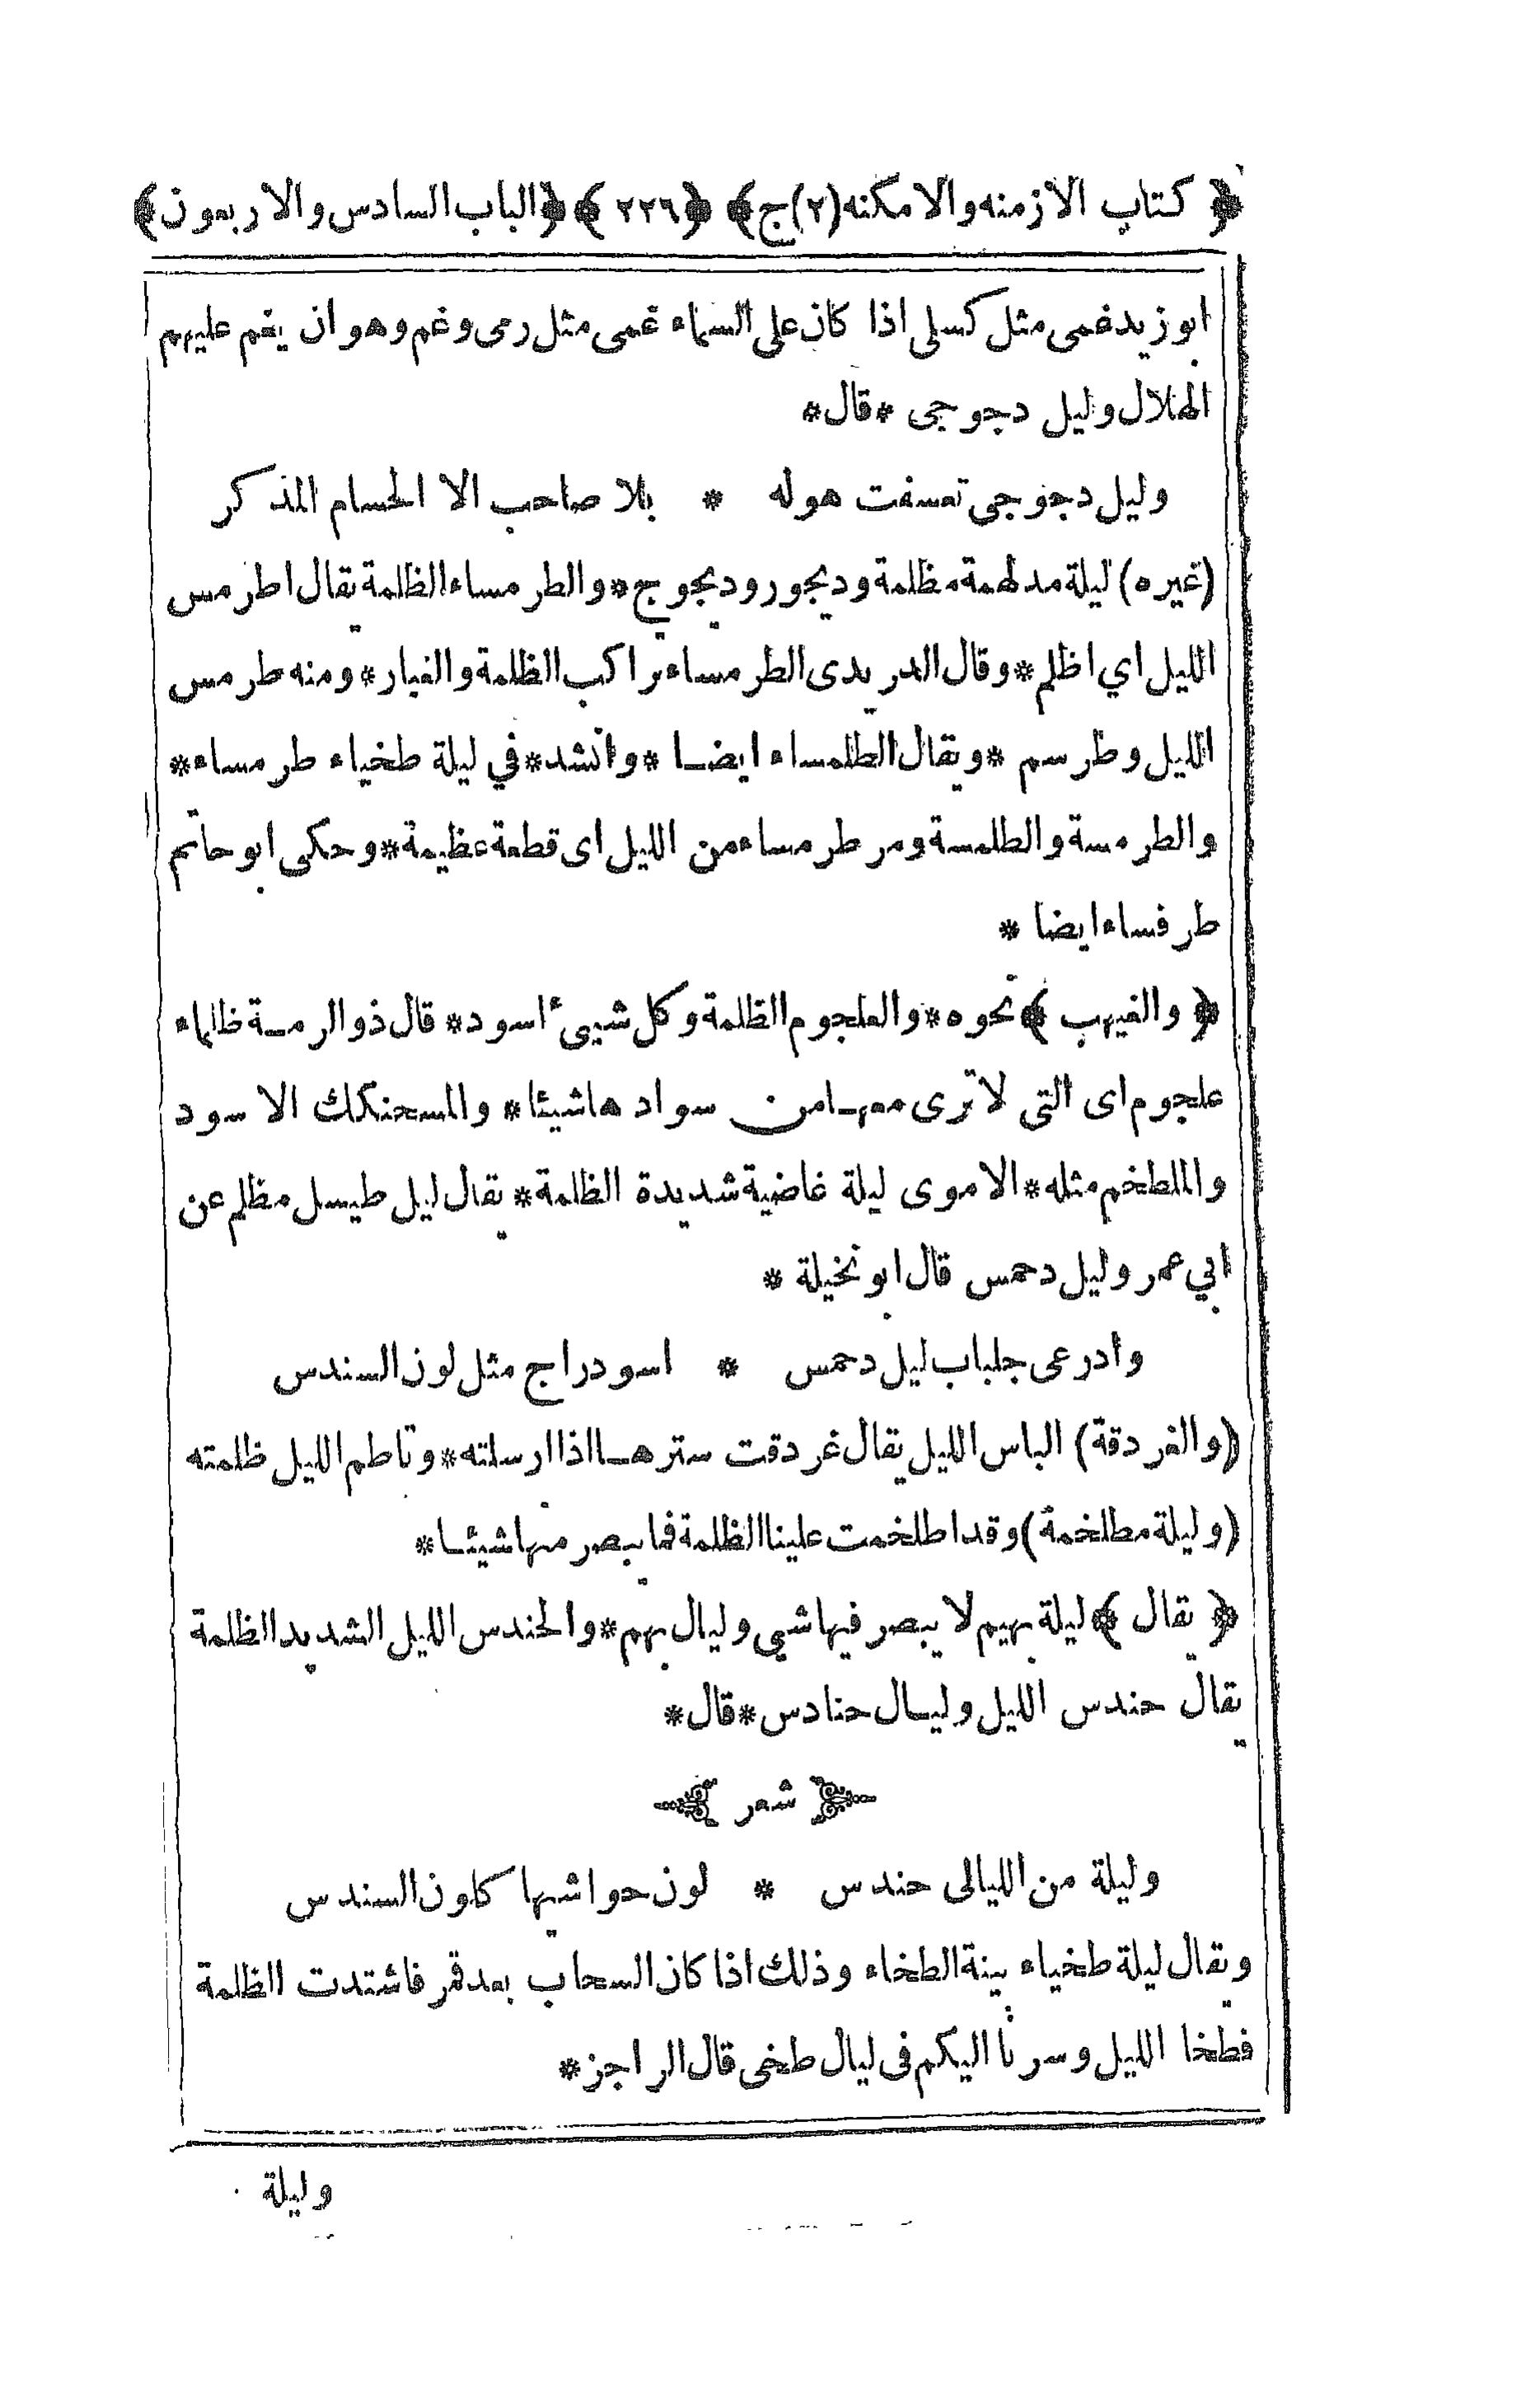 ﴿ كتاب الازمنه والامكنه (٢) ج ﴾ ﴿ ٢٢٦ ﴾ ﴿ الباب السادس والاربعون ﴾
ابو زيد غمى مثل كسلى اذا كان على السماء غمى مثل رمى وغم وهو ان يغم عليهم
الهلال وليل دجوجى * قال *
وليل دجوجى تعسفت هوله * بلا صاحب الا الحسام المذكر
(غيره) ليلة مدلهمة مظلمة وديجور وديجوج * والطرمساء الظلمة يقال اطرمس
الليل اي اظلم * وقال الدريدى الطرمساء تراكب الظلمة والغبار * ومنه طرمس
الليل وطرسم * ويقال الطلمساء ايضا * وانشد * في ليلة طخياء طرمساء *
والطرمسة والطلمسة ومر طرمساء من الليل اى قطعة عظيمة * وحكى ابو حاتم
طرفساء ايضا *
﴿ والغيهب ﴾ نحوه * والعلجوم الظلمة وكل شيئ اسود * قال ذو الرمة ظلماء
علجوم اى التى لا ترى معها من سوادها شيئا * والمسحنكك الاسود
والمطلخم مثله * الاموى ليلة غاضية شديدة الظلمة * يقال ليل طيسل مظلم عن
ابي عمر وليل دحمس قال ابو نخيلة *
وادرعى جلباب ليل دحمس * اسود راج مثل لون السندس
(والغردقة) الباس الليل يقال غردقت سترها اذا ارسلته * وتاطم الليل ظلمته
(وليلة مطلخمة) وقد اطلخمت علينا الظلمة فما يبصر منها شيئا *
﴿ يقال ﴾ ليلة بهيم لا يبصر فيها شيى وليال بهم * والحندس الليل الشديد الظلمة
يقال حندس الليل وليال حنادس * قال *
﴿ شعر ﴾
وليلة من الليالى حندس * لون حواشيها كلون السندس
ويقال ليلة طخياء بينة الطخاء وذلك اذا كان السحاب بعد قمر فاشتدت الظلمة
فطخا الليل وسرنا اليكم فى ليال طخى قال الراجز *
وليلة